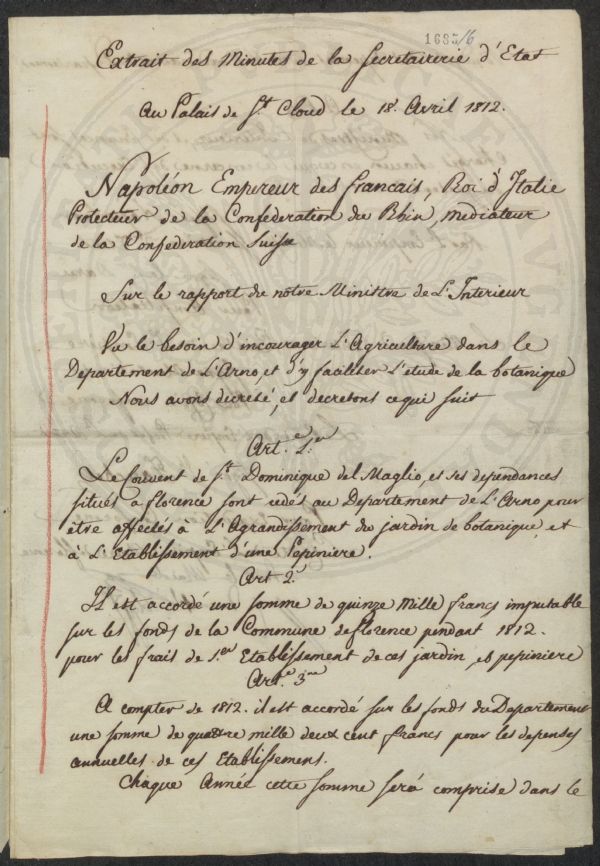 1695/6
Extrait des Minutes de la Secretairerie d'Etat
Au Palais de St. Cloud le 18. Avril 1812.
Napoléon Empereur des francais, Roi d'Italie
Protecteur de la Conféderation du Rhin, mediateur
de la Confederation Suisse
Sur le rapport de notre Ministre de L'Interieur
Vu le besoin d'incourager L'Agriculture dans le
Departement de L'Arno, et d'y faciliter L'étude de la botanique
Nous avons décreté, et decretons ce qui suit
Art.e 1.er
Le Couvent de St. Dominique del Maglio, et ses dependances
situés à florence sont cédés au Departement de L'Arno pour
être affectés à L'Agrandissement du jardin de botanique, et
à L'Etablissement d'une Pepiniere.
Art 2.
Il est accordé une somme de quinze mille francs imputable
sur les fonds de la Commune de florence pendant 1812.
pour les frais de 1.er Etablissement de ces jardin, et pepiniere
Art.e 3.me
A compter de 1812. il est accordé sur les fonds du Departement
une somme de quattre mille deux cent francs pour les depenses
annuelles de ces Etablissement.
Chaque Année cette somme será comprise dans le